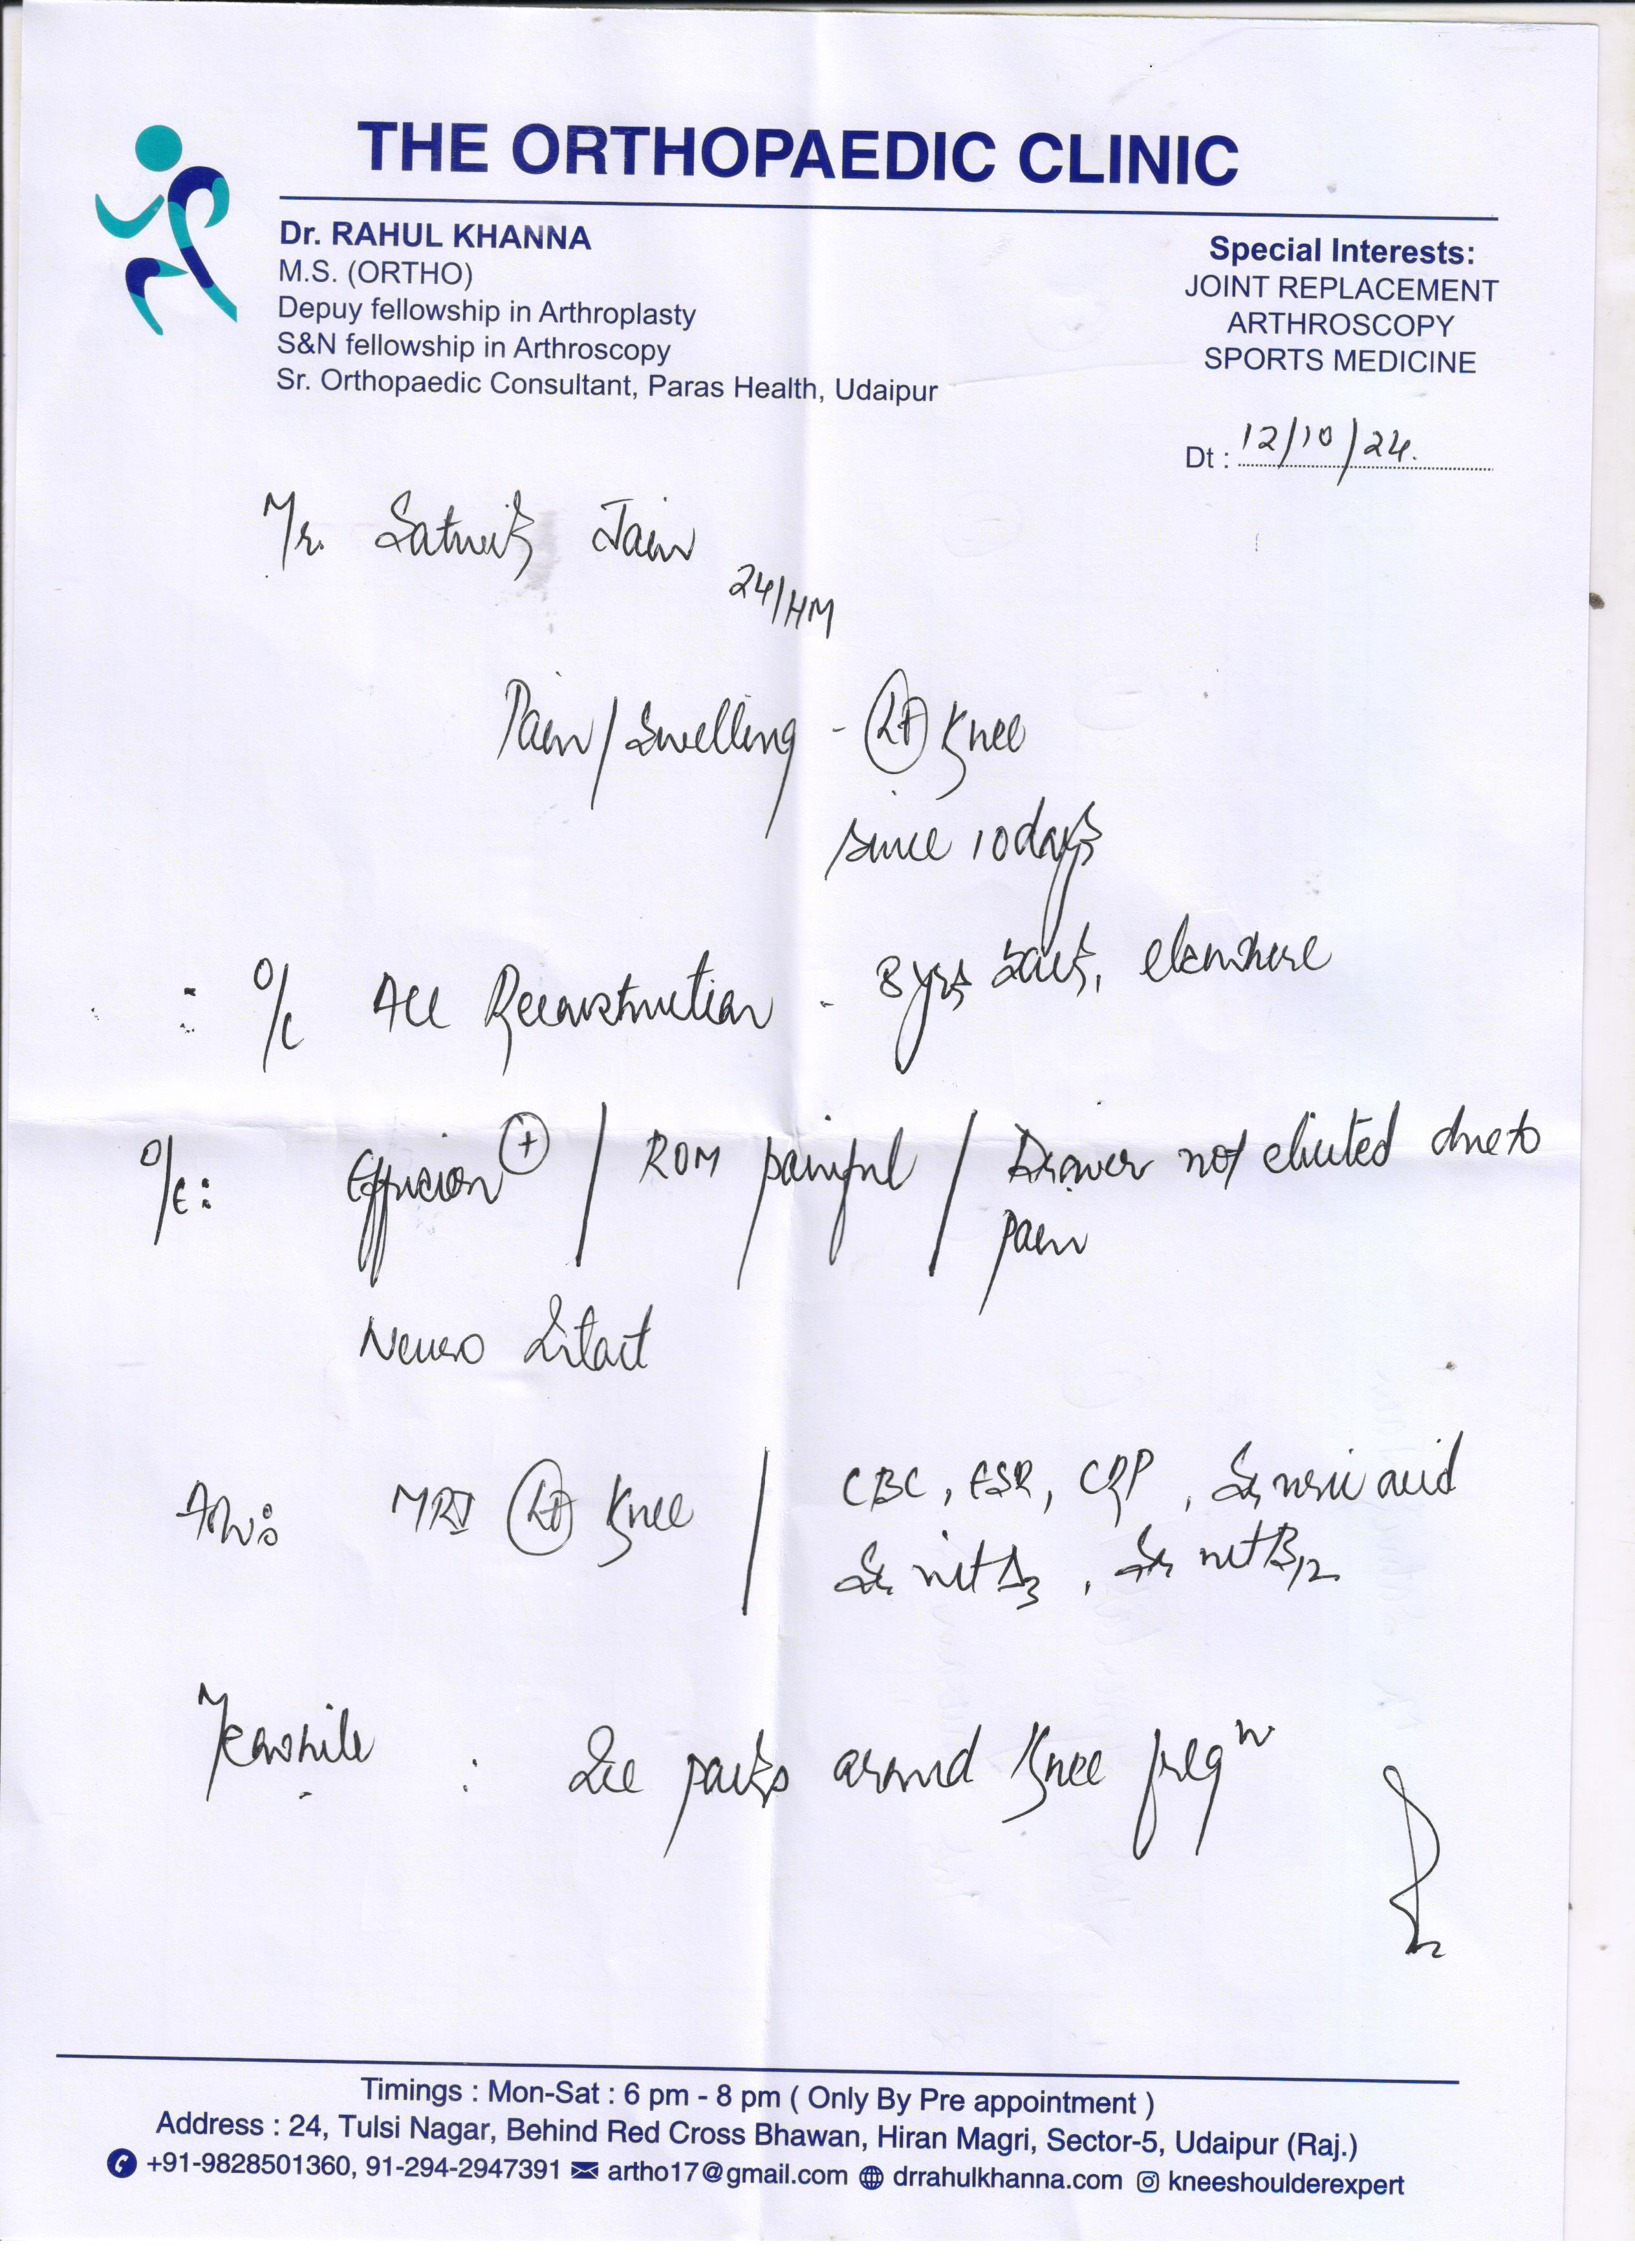 THE ORTHOPAEDIC CLINIC
Dr. RAHUL KHANNA
M.S. (ORTHO)
Depuy fellowship in Arthroplasty
S&N fellowship in Arthroscopy
Sr. Orthopaedic Consultant, Paras Health, Udaipur
Special Interests:
JOINT REPLACEMENT
ARTHROSCOPY
SPORTS MEDICINE
Dt : 12/10/24.
Mr. Satwik Jain
24/HM
Pain/Swelling - Lt Knee
since 10days
: O/C ACL Reconstruction - 8 yrs back, elsewhere
O/E: Effusion + / ROM painful / Drawer not elicited due to
pain
Neuro Intact
Adv: MRI Lt Knee / CBC, ESR, CRP, Sr uric acid
Sr vit D3, Sr vit B12
Meanwhile : Ice packs around Knee freq
Timings : Mon-Sat : 6 pm - 8 pm ( Only By Pre appointment )
Address : 24, Tulsi Nagar, Behind Red Cross Bhawan, Hiran Magri, Sector-5, Udaipur (Raj.)
+91-9828501360, 91-294-2947391 artho17@gmail.com drrahulkhanna.com kneeshoulderexpert